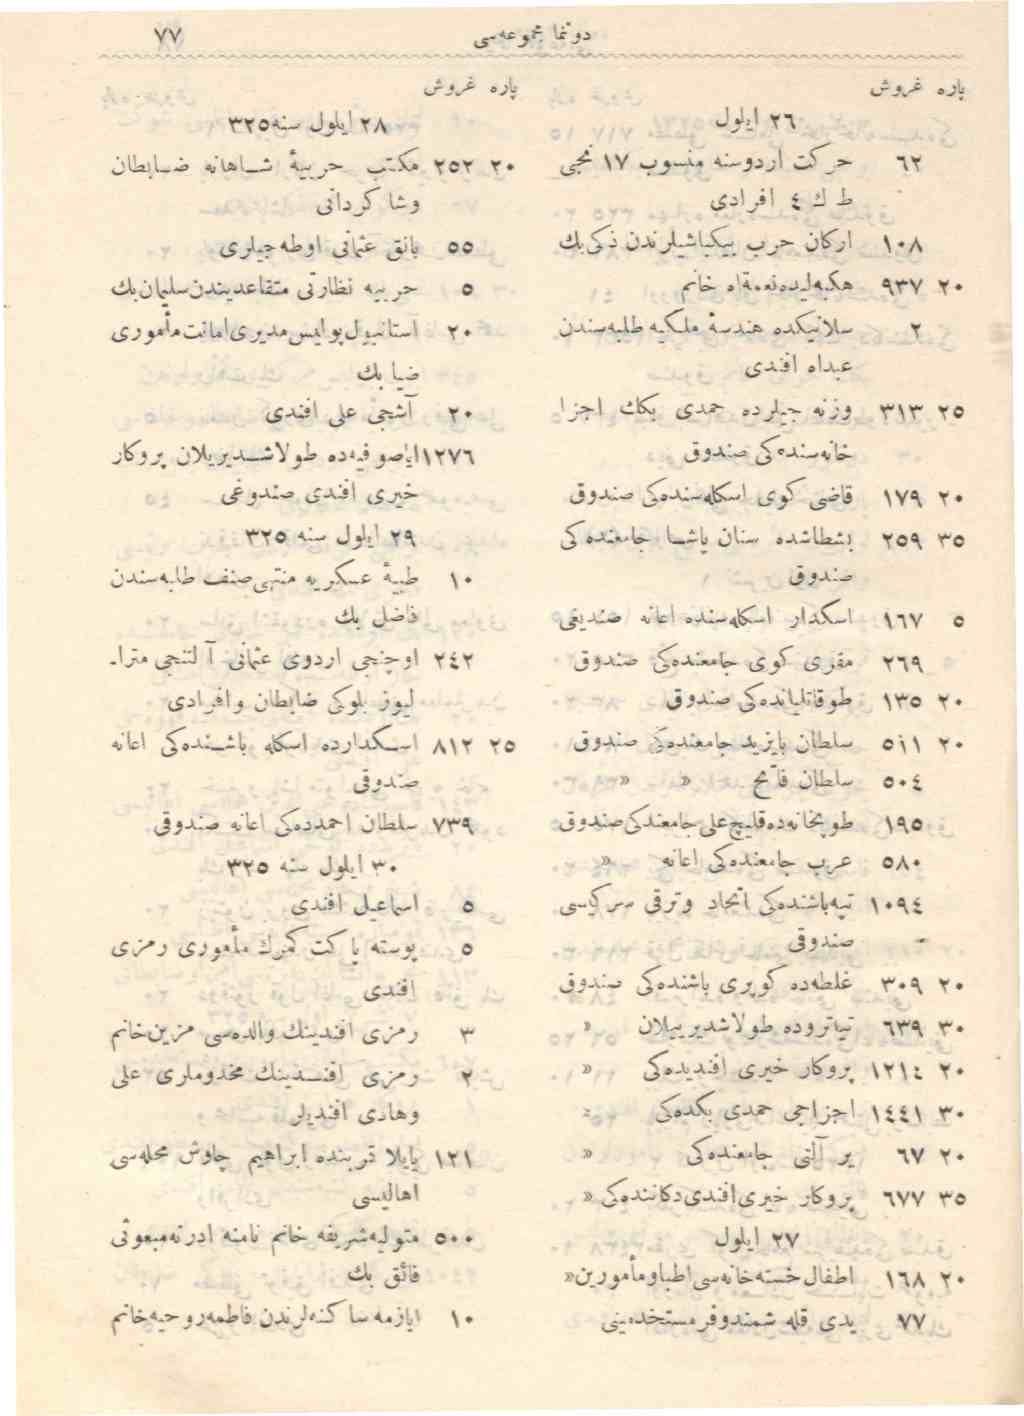 دوننما مجموعه‌سی ٧٧
پاره غروش
٢٦ ایلول
٦٢ حركت اردوسنه منسوب ١٧ نجی
ط ك ٤ افرادی
١٠٨ اركان حرب بیكباشیلرندن ذكی بك
٢٠ ٩٣٧ هكبه‌لیده نعمة‌اه خانم
٢ سلانیكده هندسهٔ ملكیه طلبه‌سندن
عبداه افندی
٢٥ ٣١٣ وزنه جیلرده حمدی بكك اجزا
خانه‌سنده‌كی صندوق
٢٠ ١٧٩ قاضی كوی اسكله‌سنده‌كی صندوق
٣٥ ٢٥٩ بشطاشده سنان پاشا جامعنده‌كی
صندوق
٥ ١٦٧ اسكدار اسكله‌سنده اعانه صندیغی
٢٦٩ مقری كوی جامعنده‌كی صندوق
٢٠ ١٣٥ طوقاتلیانده‌كی صندوق
٢٠ ٥١١ سلطان بایزید جامعنده‌كی صندوق
٥٠٤ سلطان فاتح » »
١٩٥ طوپخانه‌ده قلیچ علی جامعنده‌كی صندوق
٥٨٠ عرب جامعنده‌كی اعانه »
١٠٩٤ تپه‌باشنده‌كی اتحاد وترقی مركزی
صندوقی
٢٠ ٣٠٩ غلطه‌ده كوپری باشنده‌كی صندوق
٣٠ ٦٣٩ تیاتروده طولاشدیریلان »
٢٠ ١٢١٤ پروكار خیری افندیده‌كی »
٣٠ ١٤٤١ اجزاجی حمدی بكده‌كی »
٢٠ ٦٧ یر آلتی جامعنده‌كی »
٣٥ ٦٧٧ پروكار خیری افندی دكاننده‌كی »
٢٧ ایلول
٢٠ ١٦٨ اطفال خسته‌خانه‌سی اطبا ومأمورین »
٧٧ یدی قله شمندوفر مستخدمینی
پاره غروش
٢٨ ایلول سنه ٣٢٥
٢٠ ٢٥٢ مكتب حربیهٔ شاهانه ضابطان
وشاكردانی
٥٥ بانق عثمانی اوطه‌جیلری
٥ حربیه نظارتی متقاعدیندن سلیمان بك
٢٠ استانبول پولیس مدیری امانت مأموری
ضیا بك
٢٠ آشجی علی افندی
١٢٧٦ ایاصوفیه‌ده طولاشدیریلان پروكار
خیری افندی صندوغی
٢٩ ایلول سنه ٣٢٥
١٠ طبیهٔ عسكریه منتهی صنف طلبه‌سندن
فاضل بك
٢٤٢ اوچنجی اردوی عثمانی آلتنجی مترا.
لیوز بلوكی ضابطان وافرادی
٢٥ ٨١٢ اسكدارده اسكله باشنده‌كی اعانه
صندوقی
٧٣٩ سلطان احمدده‌كی اعانه صندوقی
٣٠ ایلول سنه ٣٢٥
٥ اسماعیل افندی
٥ پوسته پاكت كمرك مأموری رمزی
افندی
٣ رمزی افندینك والده‌سی مزین خانم
٢ رمزی افندینك مخدوملری علی
وهادی افندیلر
١٢١ یایلا قربنده ابراهیم چاوش محله‌سی
اهالیسی
٥٠٠ متولیه شریفه خانم نامنه ادرنه مبعوثی
فائق بك
١٠ ایازمه ساكنه‌لرندن فاطمه روحیه خانم